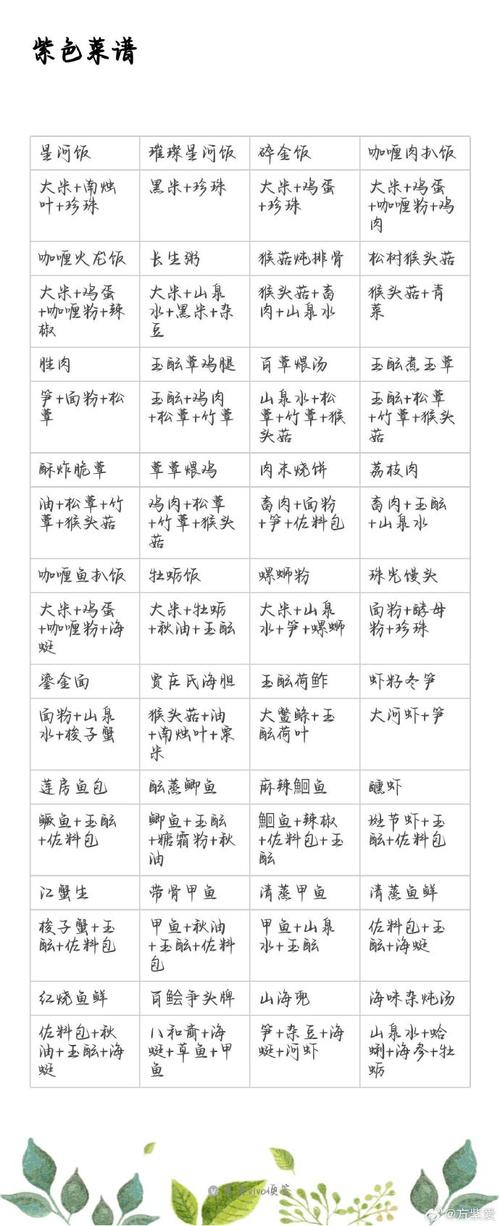 紫色菜谱
星河饭 璀璨星河饭 碎金饭 咖喱肉扒饭
大米+南烛 黑米+珍珠 大米+鸡蛋 大米+鸡蛋
叶+珍珠 +珍珠 +咖喱粉+鸡
肉
咖喱火龙饭 长生粥 猴菇炖排骨 松树猴头菇
大米+鸡蛋 大米+山泉 猴头菇+畜 猴头菇+青
+咖喱粉+辣 水+黑米+杂 肉+山泉水 菜
椒 豆
胜肉 玉酝蕈鸡腿 百蕈煨汤 玉酝煮玉蕈
笋+面粉+松 玉酝+鸡肉 山泉水+松 玉酝+松蕈
蕈 +松蕈+竹蕈 蕈+竹蕈+猴 +竹蕈+猴头
头菇 菇
酥炸脆蕈 蕈蕈煨鸡 肉末烧饼 荔枝肉
油+松蕈+竹 鸡肉+松蕈 畜肉+面粉 畜肉+玉酝
蕈+猴头菇 +竹蕈+猴头 +笋+佐料包 +山泉水
菇
咖喱鱼扒饭 牡蛎饭 螺蛳粉 珠光馒头
大米+鸡蛋 大米+牡蛎 大米+山泉 面粉+酵母
+咖喱粉+海 +秋油+玉酝 水+笋+螺蛳 粉+珍珠
蜓
鎏金面 贾庄氏海胆 玉酝荷鲊 虾籽冬笋
面粉+山泉 猴头菇+油 大鳖鲦+玉 大河虾+笋
水+梭子蟹 +南烛叶+粟 酝荷叶
米
莲房鱼包 酝蒸鲫鱼 麻辣鮰鱼 醺虾
鳜鱼+玉酝 鲫鱼+玉酝 鮰鱼+辣椒 斑节虾+玉
+佐料包 +糖霜粉+秋 +佐料包+玉 酝+佐料包
油 酝
江蟹生 带骨甲鱼 清蒸甲鱼 清蒸鱼鲜
梭子蟹+玉 甲鱼+秋油 甲鱼+山泉 佐料包+玉
酝+佐料包 +玉酝+佐料 水+玉酝 酝+海蜓
包
红烧鱼鲜 百鲙争头牌 山海兜 海味杂炖汤
佐料包+秋 八和齑+海 笋+杂豆+海 山泉水+蛤
油+玉酝+海 蜓+草鱼+甲 蜓+河虾 蜊+海参+牡
蜓 鱼 蛎